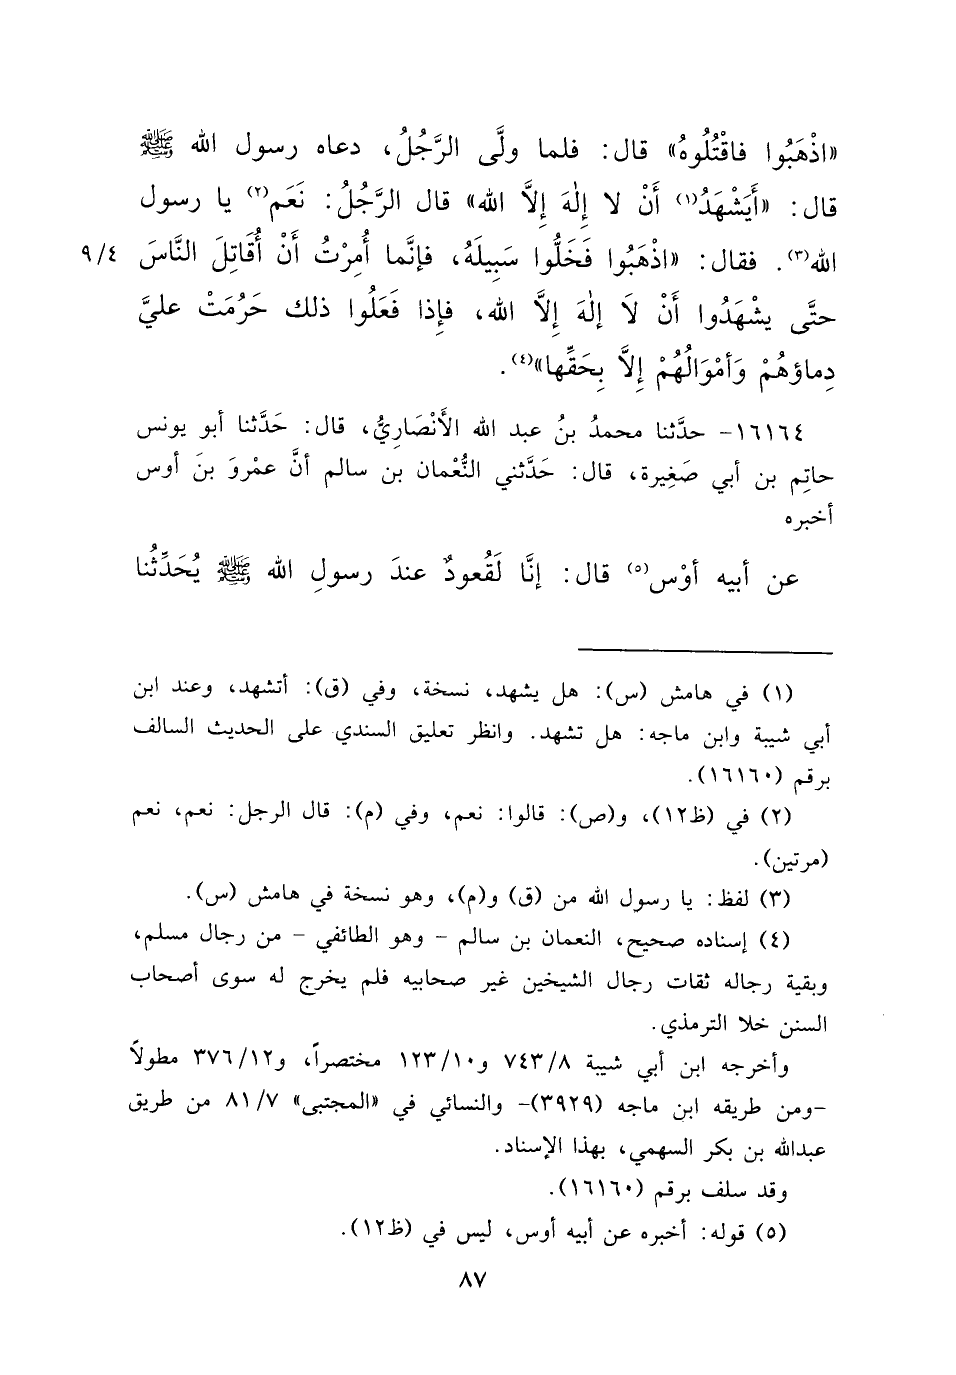 «اذْهَبُوا فاقْتُلُوهُ» قال: فلما ولَّى الرَّجُلُ، دعاه رسول الله ﷺ
قال: «أَيَشْهَدُ(١) أَنْ لا إِلٰهَ إِلاَّ الله» قال الرَّجُلُ: نَعَم(٢) يا رسول
الله(٣). فقال: «اذْهَبُوا فَخَلُّوا سَبِيلَهُ، فإنَّما أُمِرْتُ أَنْ أُقَاتِلَ النَّاسَ ٩/٤
حتَّى يشْهَدُوا أَنْ لَا إلٰهَ إِلاَّ الله، فإِذا فَعَلُوا ذلك حَرُمَتْ عليَّ
دِماؤهُمْ وَأمْوَالُهُمْ إِلاَّ بِحَقِّها»(٤).
١٦١٦٤- حدَّثنا محمدُ بنُ عبد الله الأَنْصَارِيُّ، قال: حَدَّثنا أبو يونس
حاتِم بن أبي صَغِيرة، قال: حَدَّثني النُّعْمان بن سالم أنَّ عمْروَ بنَ أوس
أخبره
عن أبيه أوْس(٥) قال: إنَّا لَقُعودٌ عندَ رسولِ الله ﷺ يُحَدِّثُنا
(١) في هامش (س): هل يشهد، نسخة، وفي (ق): أتشهد، وعند ابن
أبي شيبة وابن ماجه: هل تشهد. وانظر تعليق السندي على الحديث السالف
برقم (١٦١٦٠).
(٢) في (ظ١٢)، و(ص): قالوا: نعم، وفي (م): قال الرجل: نعم، نعم
(مرتين).
(٣) لفظ: يا رسول الله من (ق) و(م)، وهو نسخة في هامش (س).
(٤) إسناده صحيح، النعمان بن سالم - وهو الطائفي - من رجال مسلم،
وبقية رجاله ثقات رجال الشيخين غير صحابيه فلم يخرج له سوى أصحاب
السنن خلا الترمذي.
وأخرجه ابن أبي شيبة ٧٤٣/٨ و١٢٣/١٠ مختصراً، و٣٧٦/١٢ مطولاً
-ومن طريقه ابن ماجه (٣٩٢٩)- والنسائي في «المجتبى» ٨١/٧ من طريق
عبدالله بن بكر السهمي، بهذا الإسناد.
وقد سلف برقم (١٦١٦٠).
(٥) قوله: أخبره عن أبيه أوس، ليس في (ظ١٢).
٨٧